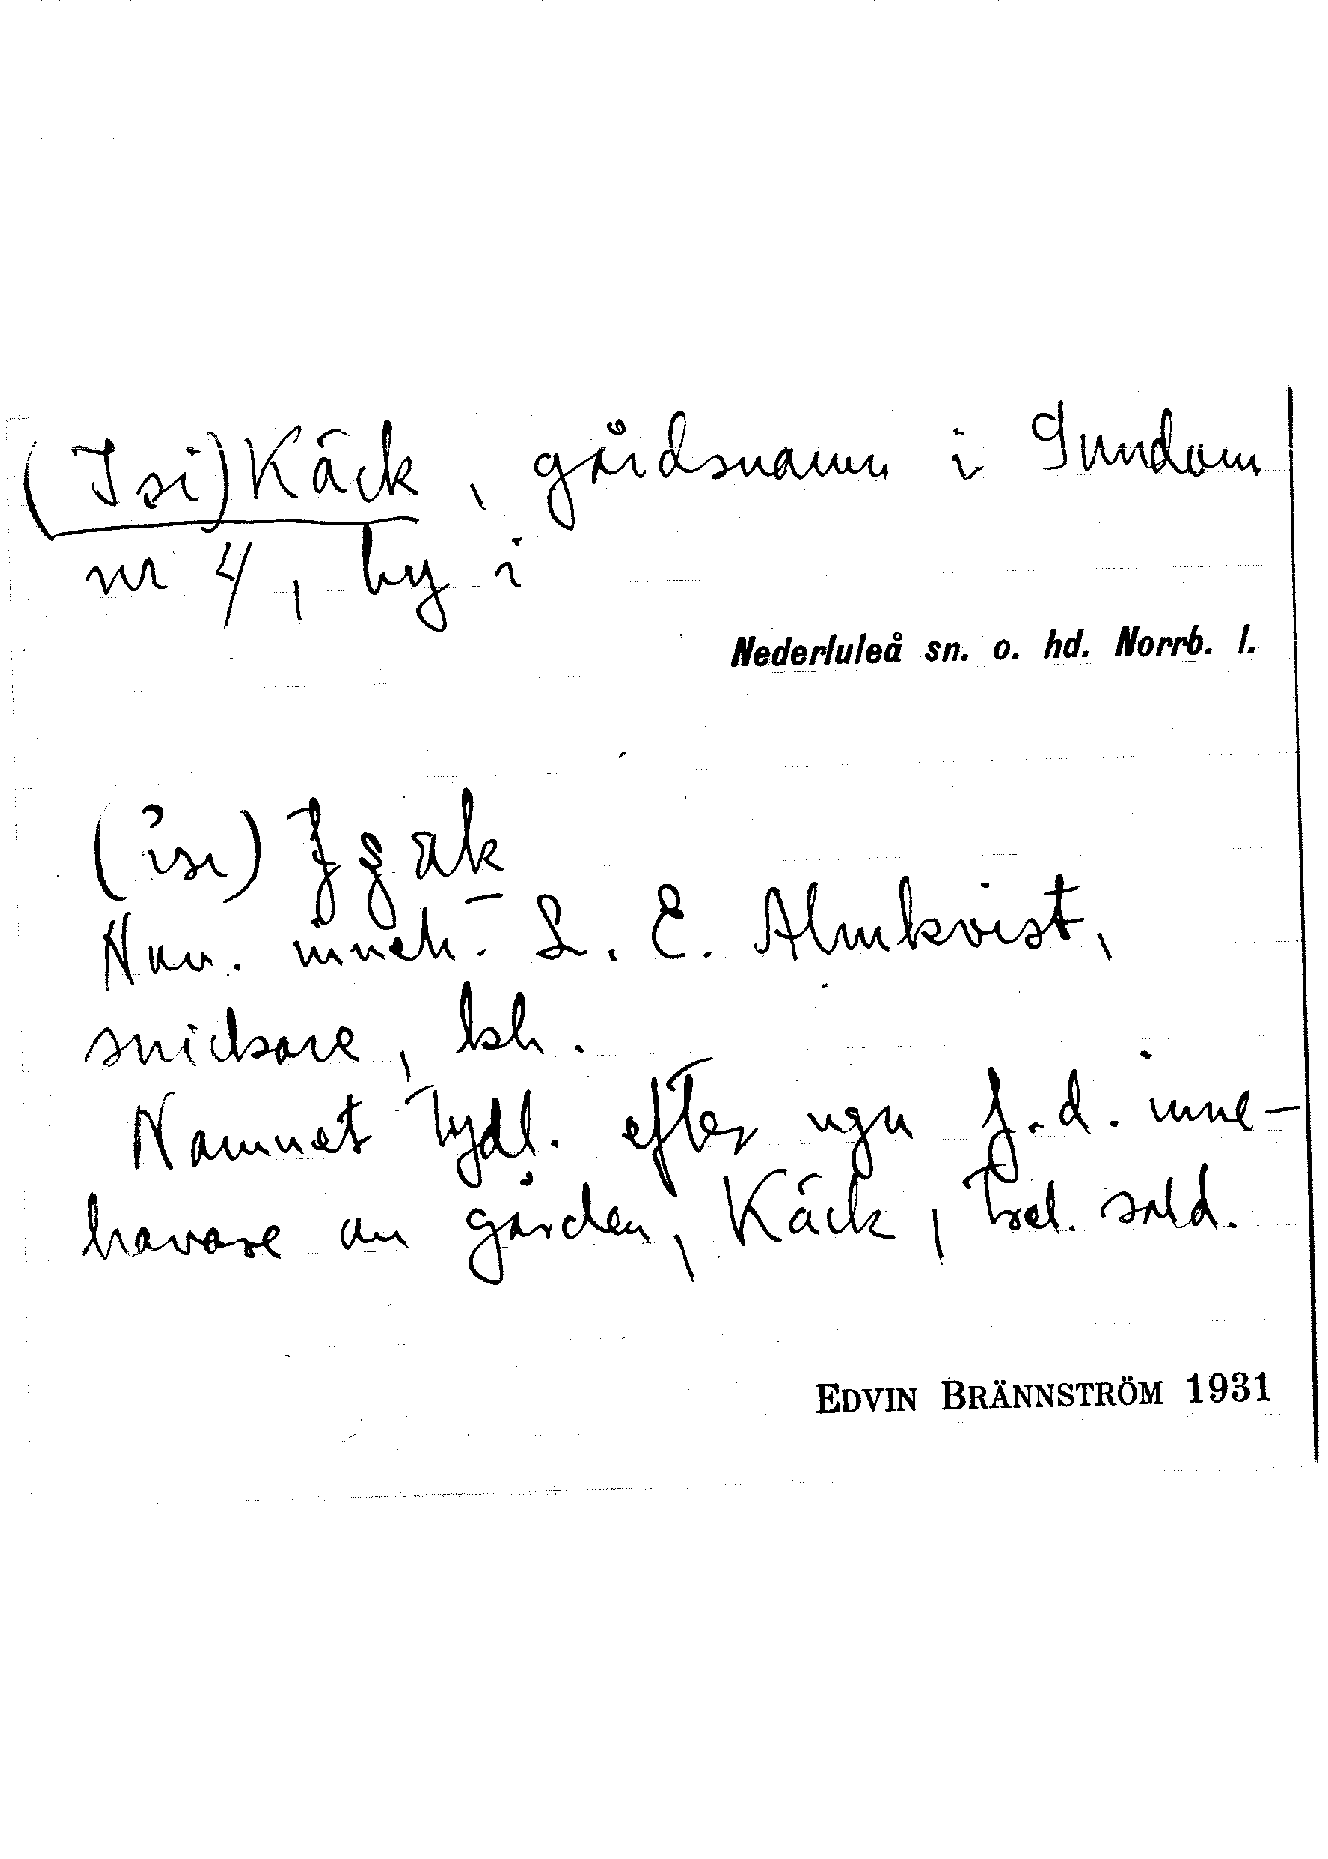 (Isi)Käck, gårdsnamn i Sundom
nr 4, by i
Nederluleå sn. o. hd. Norrb. l.
Nuv. inneh. L. E. Almkvist,
snickare, bh.
Namnet tydl. efter ngn f.d. inne-
havare av gården, Käck, tzel. sold.
EDVIN BRÄNNSTRÖM 1931